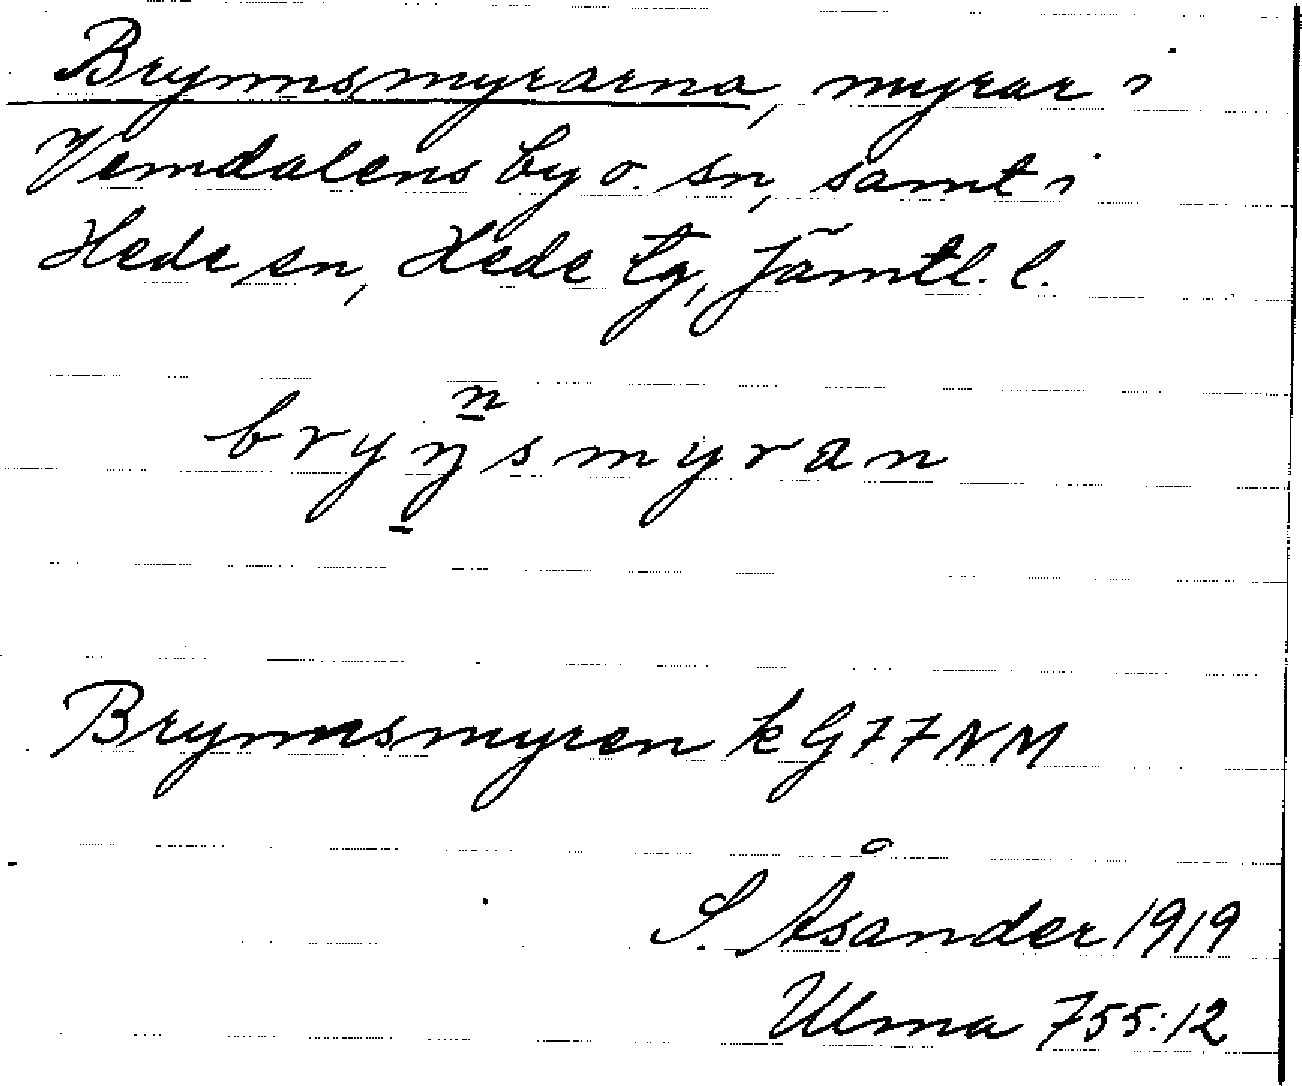 Brynnsmyrarna, myrar i
Vemdalens by o. sn, samt i
Hede sn, Hede tg, Jämtl. l.
n
bryŋsmyran
Brynnsmyren k G77NM
S. Åsander 1919
Ulma 755:12